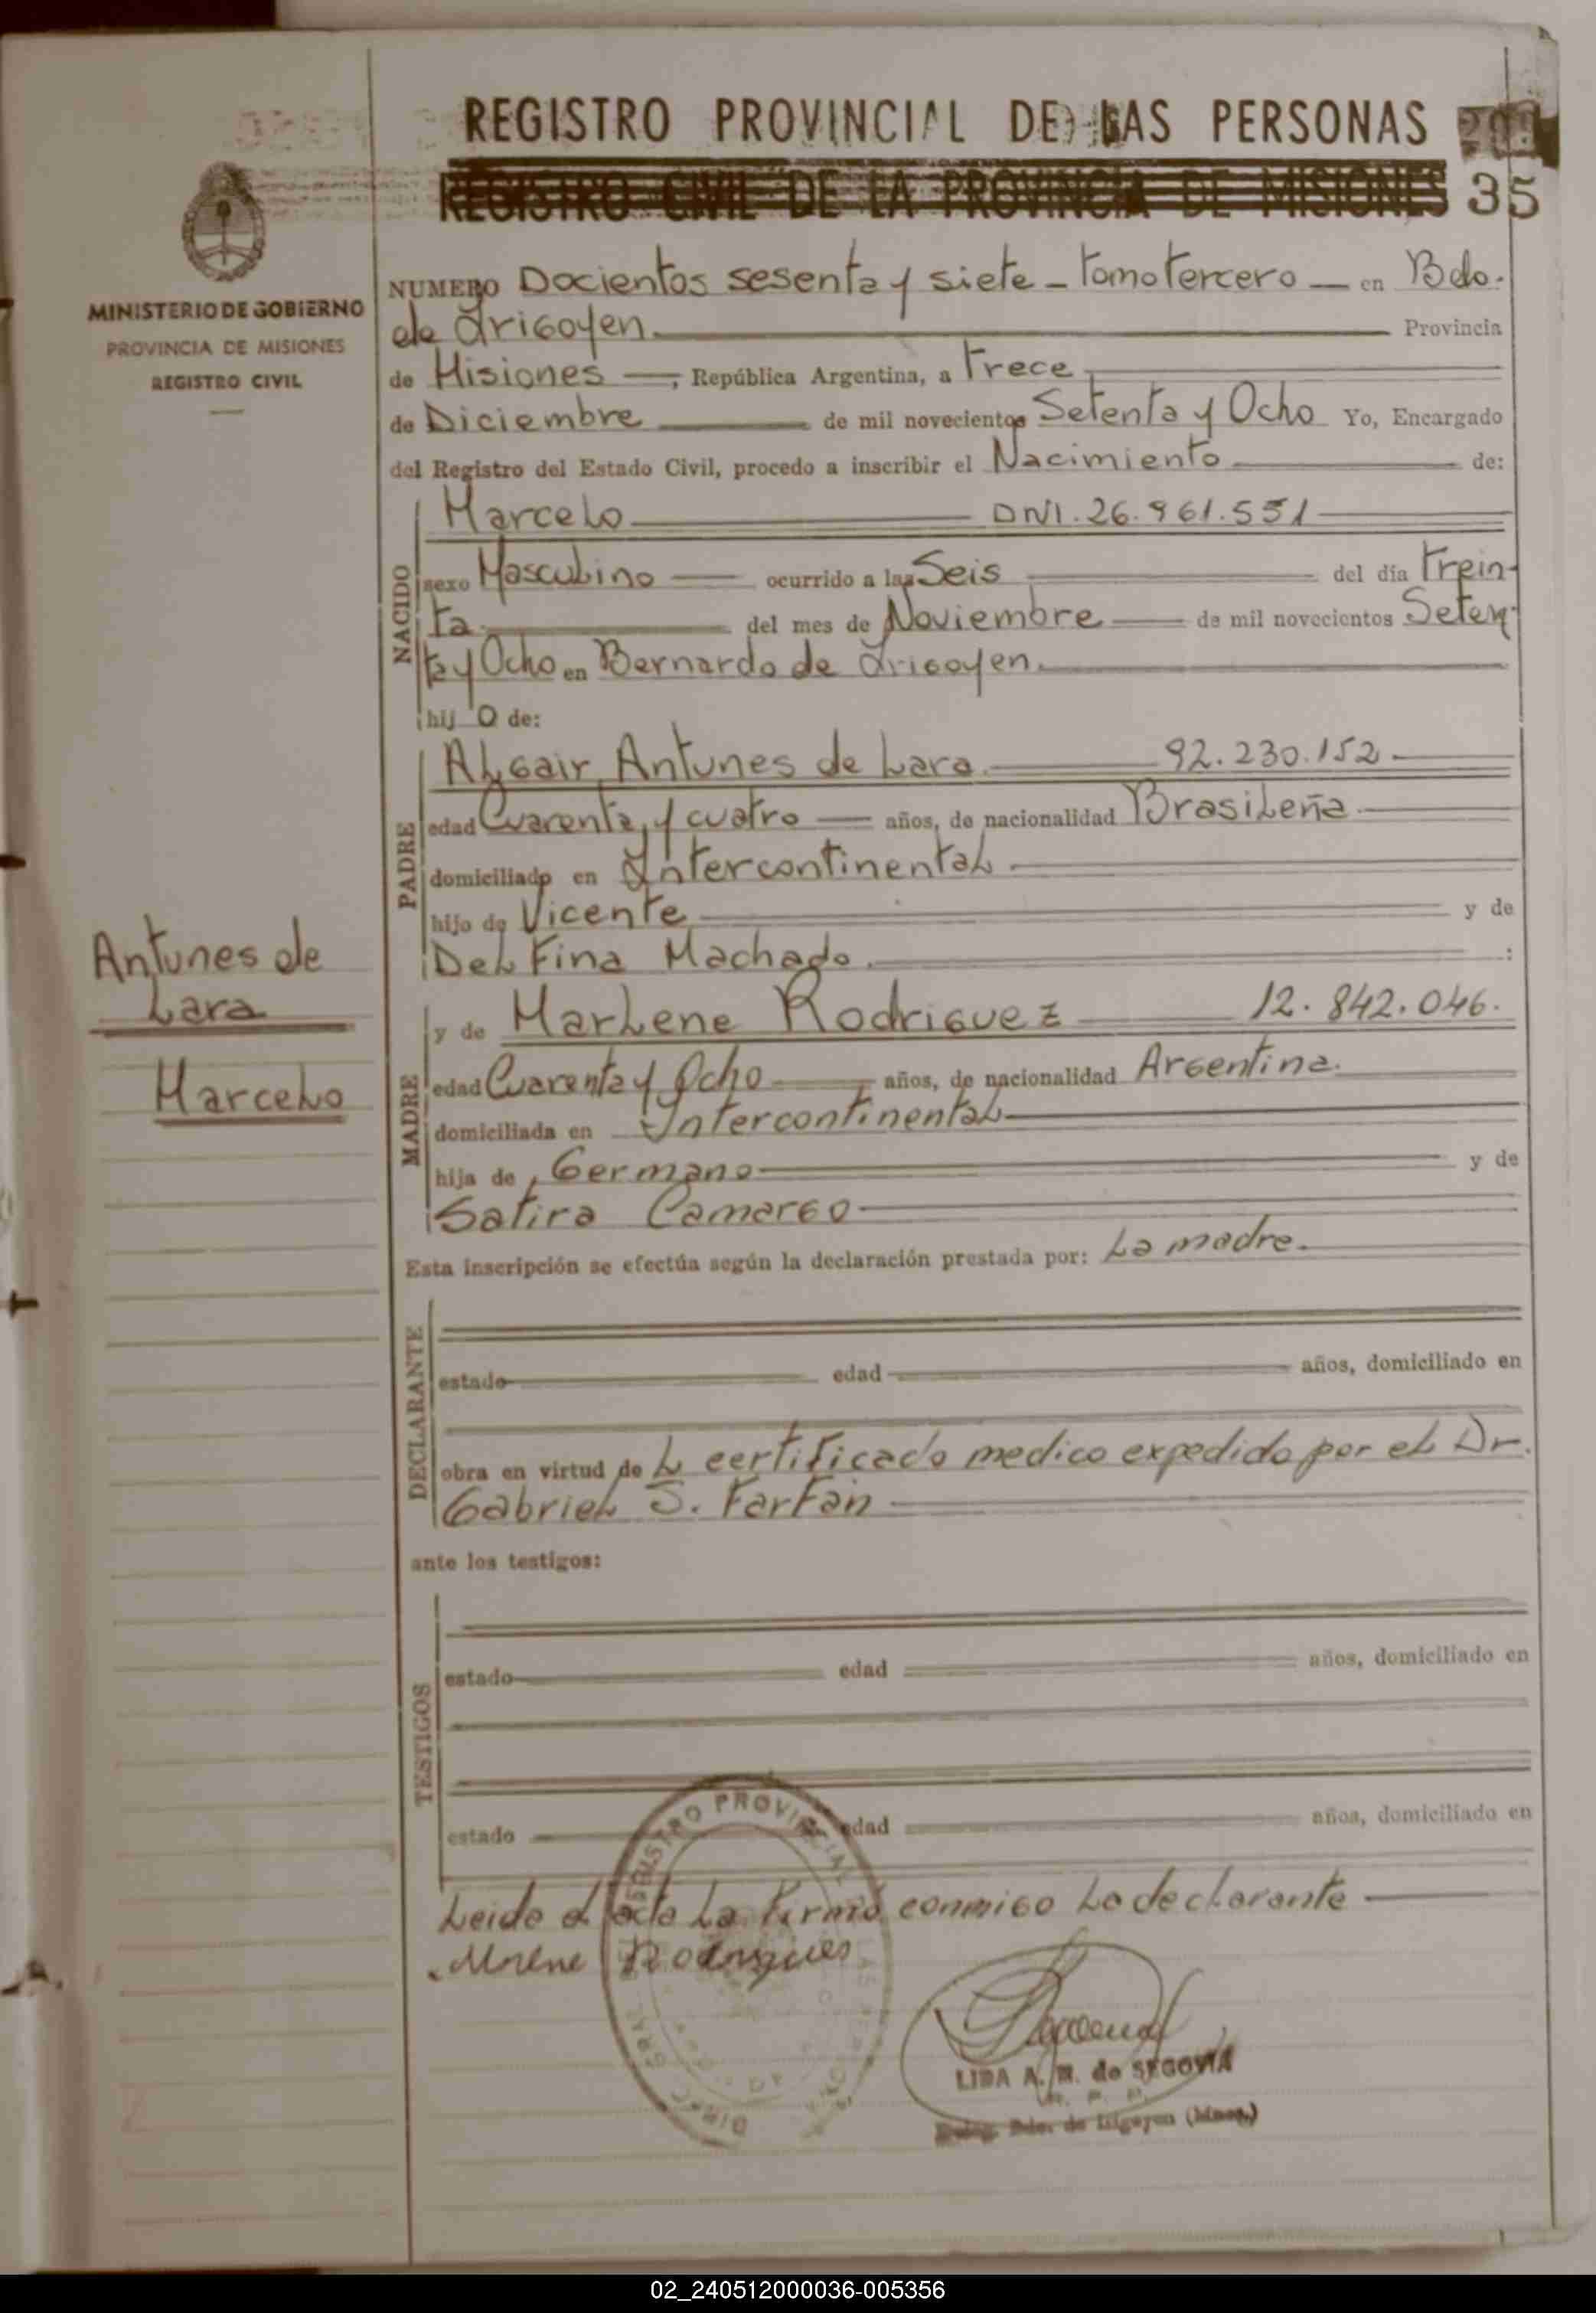 REGISTRO PROVINCIAL DE LAS PERSONAS
REGISTRO CIVIL DE LA PROVINCIA DE MISIONES 35
MINISTERIO DE GOBIERNO
PROVINCIA DE MISIONES
REGISTRO CIVIL
NUMERO Docientos sesenta y siete - tomo tercero - en Bdo.
de Irigoyen. Provincia
de Misiones -, República Argentina, a trece
de Diciembre de mil novecientos Setenta y Ocho Yo, Encargado
del Registro del Estado Civil, procedo a inscribir el Nacimiento de:
NACIDO
Marcelo DNI. 26.961.551
sexo Masculino ocurrido a las Seis del día trein-
ta del mes de Noviembre de mil novecientos Seten-
ta y Ocho en Bernardo de Irigoyen.
hijo de:
PADRE
Algair Antunes de Lara. 92.230.152
edad Cuarenta y cuatro años, de nacionalidad Brasileña
domiciliado en Intercontinental
hijo de Vicente y de
Delfina Machado. :
Antunes de
Lara
Marcelo
MADRE
y de Marlene Rodriguez 12.842.046.
edad Cuarenta y Ocho años, de nacionalidad Argentina.
domiciliada en Intercontinental
hija de Germano y de
Satira Camargo
Esta inscripción se efectúa según la declaración prestada por: La madre.
DECLARANTE
estado edad años, domiciliado en
obra en virtud de L certificado medico expedido por el Dr.
Gabriel S. Farfan
ante los testigos:
TESTIGOS
estado edad años, domiciliado en
estado edad años, domiciliado en
REGISTRO PROVINCIAL
Leida el acta la firma conmigo la declarante
Rodrigues
LIDA A. M. de SEGOVIA
Bdo. de Irigoyen (Mnes.)
02_240512000036-005356